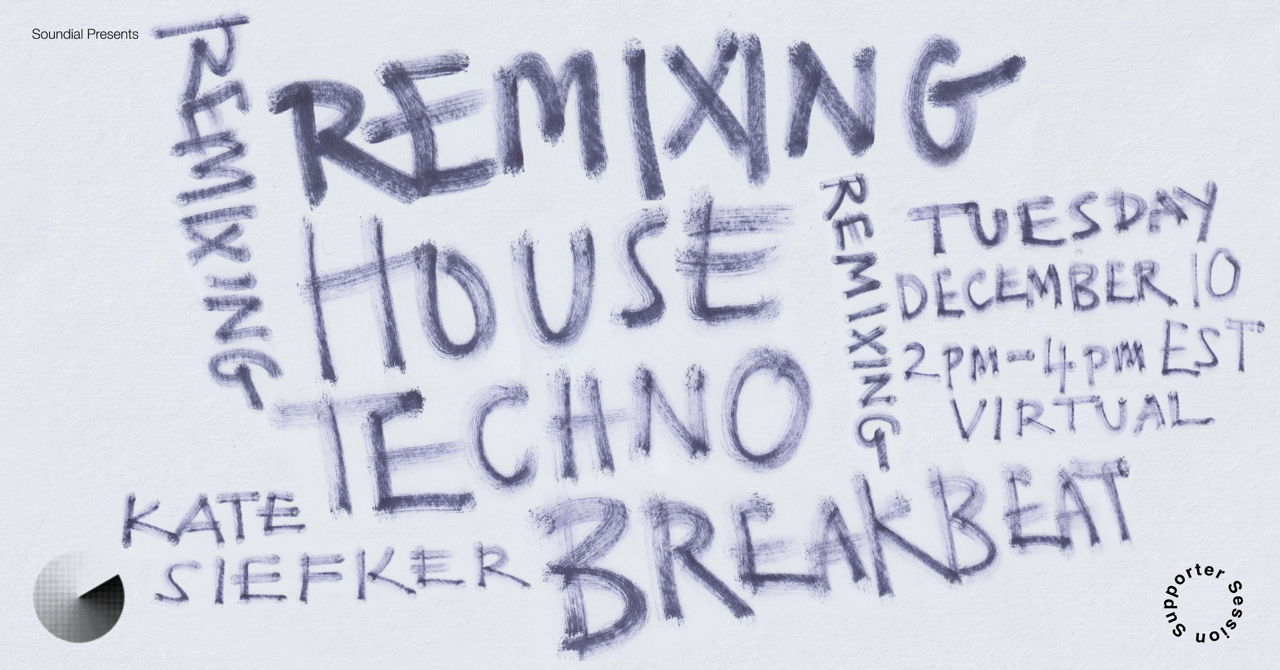 Soundial Presents
REMIXING
REMIXING
HOUSE
TECHNO
BREAKBEAT
REMIXING
TUESDAY
DECEMBER 10
2pm-4pm EST
VIRTUAL
KATE
SIEFKER
Supporter Session